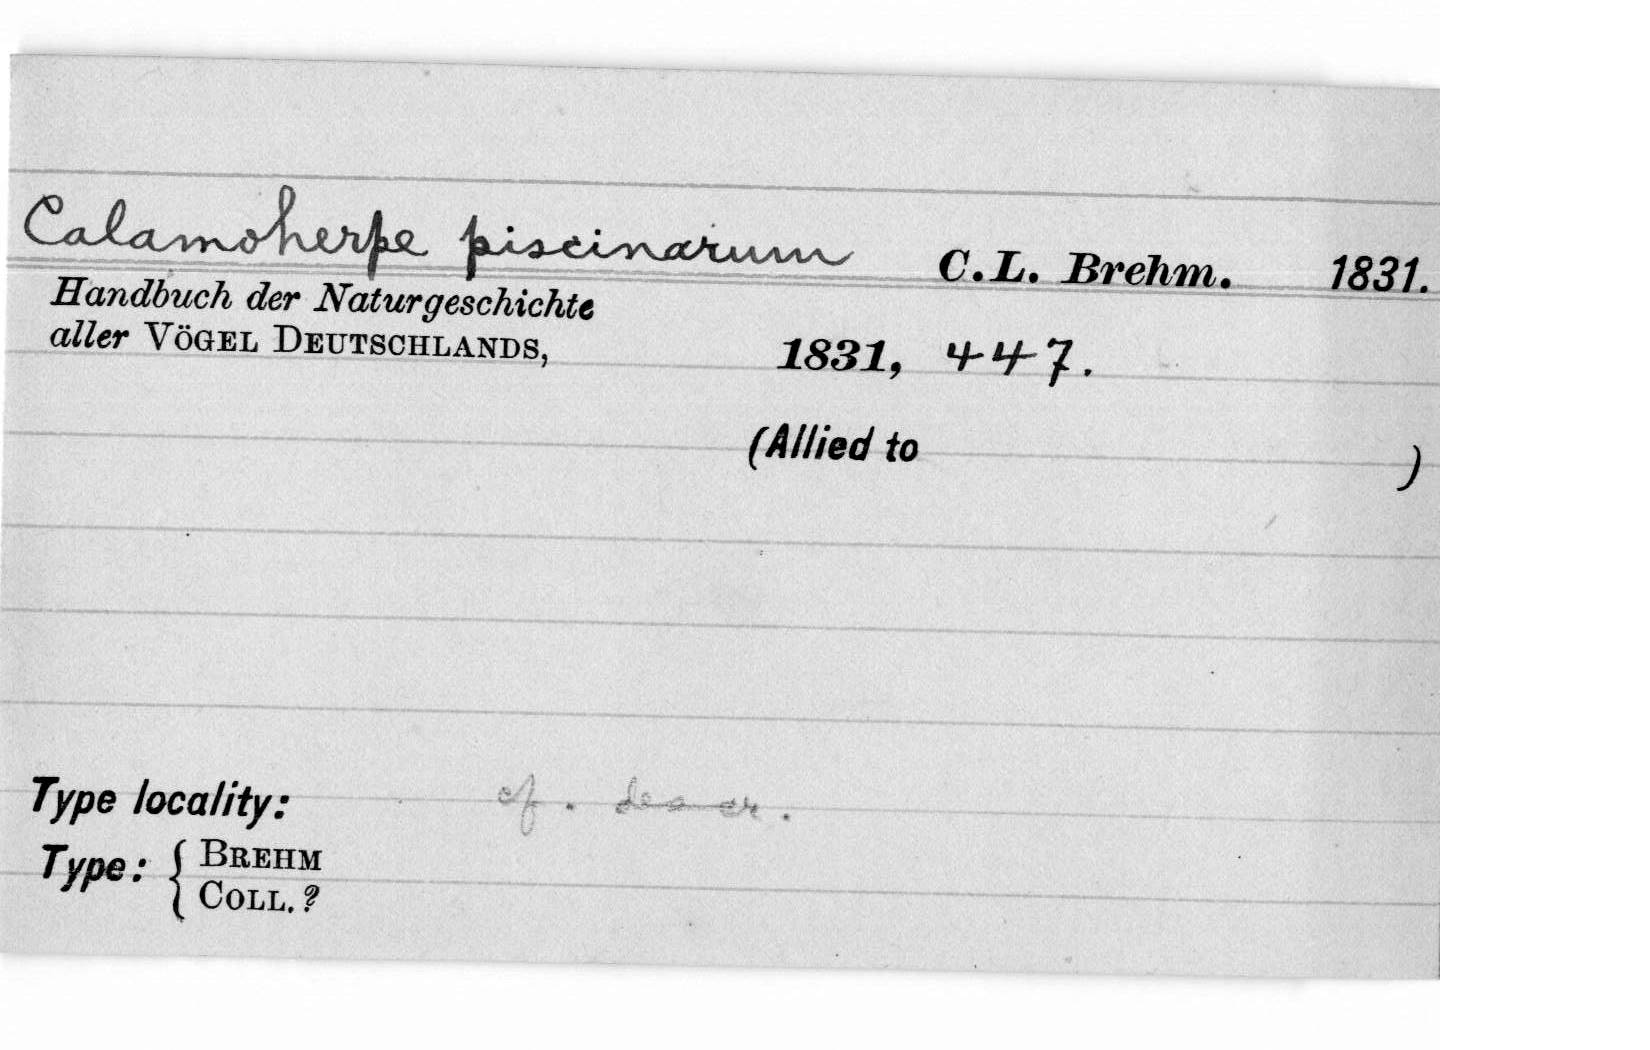 Calamoherpe piscinarum C.L. Brehm. 1831.
Handbuch der Naturgeschichte
aller VÖGEL DEUTSCHLANDS, 1831, 447.
(Allied to )
Type locality: cf. descr.
Type: { BREHM
COLL. ?